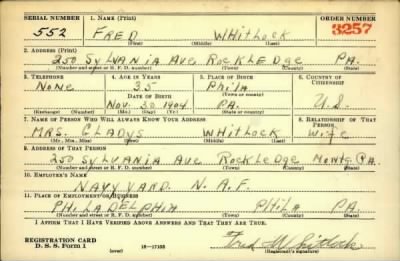 SERIAL NUMBER 1. NAME (Print) ORDER NUMBER
552 FRED WHITLOCK 3257
(First) (Middle) (Last)
2. ADDRESS (Print)
250 SYLVANIA AVE ROCKLEDGE PA.
(Number and street or R. F. D. number) (Town) (County) (State)
3. TELEPHONE 4. AGE IN YEARS 5. PLACE OF BIRTH 6. COUNTRY OF CITIZENSHIP
NONE 35 Phila
DATE OF BIRTH (Town or county)
Nov. 30 1904 PA. U.S.
(Exchange) (Number) (Mo.) (Day) (Yr.) (State or country)
7. NAME OF PERSON WHO WILL ALWAYS KNOW YOUR ADDRESS 8. RELATIONSHIP OF THAT PERSON
MRS. GLADYS WHITLOCK WIFE
(Mr., Mrs., Miss) (First) (Middle) (Last)
9. ADDRESS OF THAT PERSON
250 SYLVANIA AVE ROCKLEDGE MONTG PA.
(Number and street or R. F. D. number) (Town) (County) (State)
10. EMPLOYER'S NAME
NAVY YARD. N. A. F.
11. PLACE OF EMPLOYMENT OR BUSINESS
PHILADELPHIA PHILA PA.
(Number and street or R. F. D. number) (Town) (County) (State)
I AFFIRM THAT I HAVE VERIFIED ABOVE ANSWERS AND THAT THEY ARE TRUE.
REGISTRATION CARD
D. S. S. Form 1 (over) 16-17105 Fred Whitlock
(Registrant's signature)